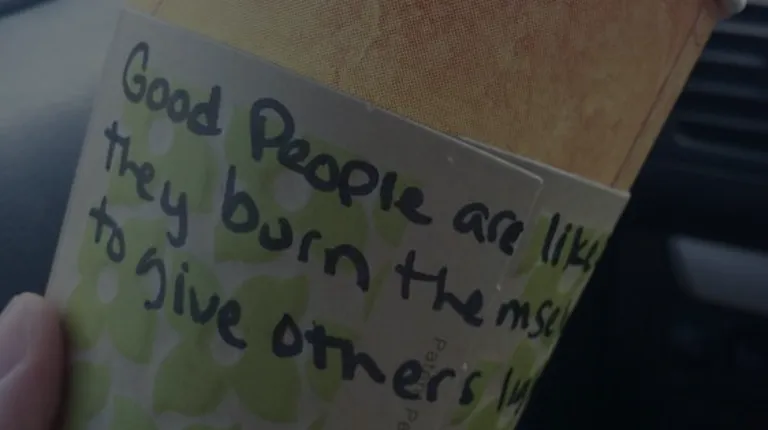 Good People are like
they burn themse
to give others